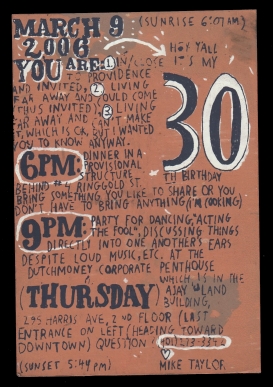 MARCH 9 (SUNRISE 6:07AM)
2006 HEY Y'ALL
YOU ARE: 1) IN/CLOSE IT'S MY
TO PROVIDENCE
AND INVITED, 2) LIVING 30
FAR AWAY AND COULD COME
THUS INVITED, 3) LIVING
FAR AWAY AND CAN'T MAKE
IT, WHICH IS OK, BUT I WANTED
YOU TO KNOW ANYWAY.
6PM: DINNER IN A
PROVISIONAL
STRUCTURE TH BIRTHDAY
BEHIND RINGGOLD ST.
BRING SOMETHING YOU LIKE TO SHARE OR YOU
DON'T HAVE TO BRING ANYTHING (I'M COOKING)
9PM: PARTY FOR DANCING, "ACTING
THE FOOL", DISCUSSING THINGS
DIRECTLY INTO ONE ANOTHER'S EARS
DESPITE LOUD MUSIC, ETC. AT THE
DUTCHMONEY CORPORATE PENTHOUSE
(THURSDAY) WHICH IS IN THE
AJAY LAND
BUILDING,
295 HARRIS AVE, 2ND FLOOR (LAST
ENTRANCE ON LEFT (HEADING TOWARD
DOWNTOWN) QUESTION (401)
(SUNSET 5:44PM) MIKE TAYLOR